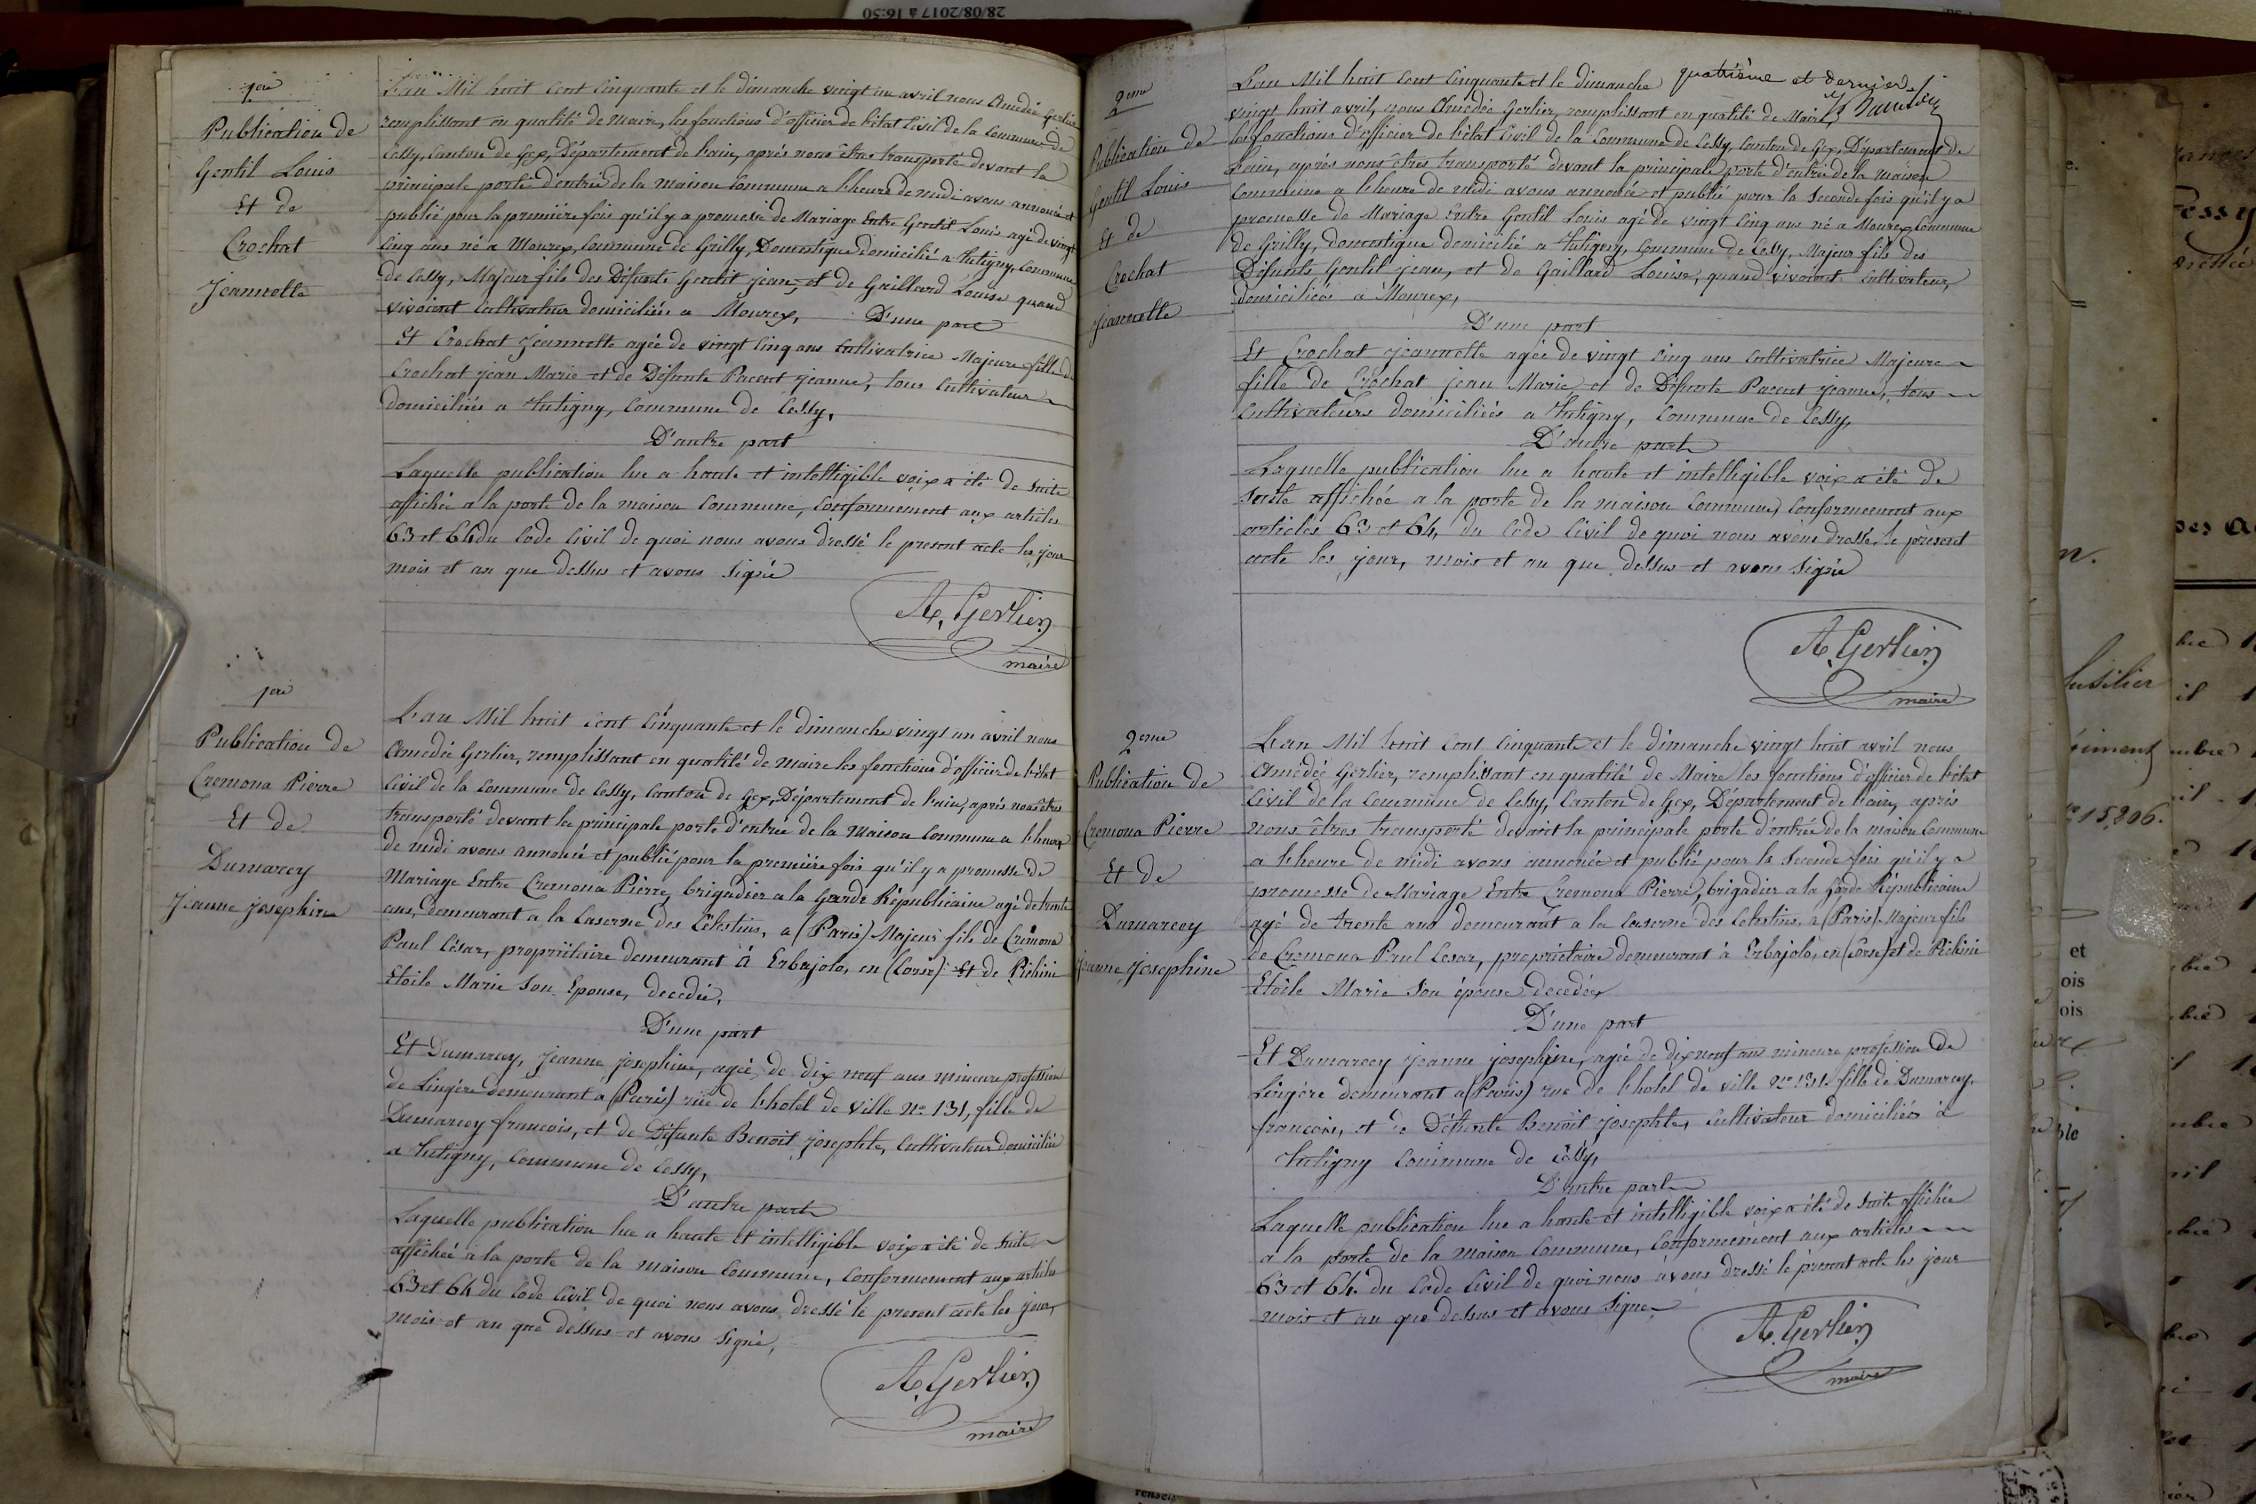 28/08/2017 à 16:50
1ere
Publication de
Gentil Louis
Et de
Crochat
Jeannette
L'an Mil huit Cent Cinquante et le dimanche vingt un avril nous Amédée Gerlier
remplissant en qualité de maire, les fonctions d'officier de l'état Civil de la Commune de
Cessy, Canton de Gex, Département de l'ain, après nous êtres transporté devant la
principale porte d'entrée de la maison Commune a l'heure de midi avons annoncé et
publié pour la première fois qu'il y a promesse de Mariage Entre Gentil Louis agé de vingt
Cinq ans né a Mourex, Commune de Grilly, Domestique domicilié a Tutigny, Commune
de Cessy, Majeur fils des Défunts Gentil jean, et de Gaillard Louise quand
vivoient Cultivateur domiciliés a Mourex, D'une part
Et Crochat Jeannette agée de vingt Cinq ans Cultivatrice Majeure fille de
Crochat jean Marie et de Défunte Pacent jeanne, tous Cultivateur
domiciliés a Tutigny, Commune de Cessy,
D'autre part
Laquelle publication lue a haute et intelligible voix a été de suite
affichée a la porte de la maison Commune, Conformement aux articles
63 et 64 du Code Civil de quoi nous avons dressé le present acte les jour
mois et an que dessus et avons signé
A. Gerlier
maire
1ere
Publication de
Cremona Pierre
Et de
Dumarcey
Jeanne Josephine
L'an Mil huit Cent Cinquante et le dimanche vingt un avril nous
Amédée Gerlier, remplissant en qualité de maire les fonctions d'officier de l'état
Civil de la Commune de Cessy, Canton de Gex, Département de l'ain, après nous êtres
transporté devant la principale porte d'entrée de la Maison Commune a l'heure
de midi avons annoncé et publié pour la première fois qu'il y a promesse de
Mariage Entre Cremona Pierre, brigadier a la Garde Républicaine agé de trente
ans, demeurant a la Caserne des Célestins, a (Paris) Majeur fils de Cremona
Paul César, propriétaire demeurant à Erbajolo, en (Corse) Et de Pichini
Etoile Marie Son Epouse, decedée,
D'une part
Et Dumarcey, Jeanne josephine, agée, de dix neuf ans mineure profession
de Lingère demeurant a (Paris) rüe de l'hotel de ville No 131, fille de
Dumarcey francois, et de Défunte Benoit josephte, Cultivateur domiciliés
a Tutigny, Commune de Cessy,
D'autre part
Laquelle publication lue a haute et intelligible voix a été de suite
affichée a la porte de la maison Commune, Conformement aux articles
63 et 64 du Code Civil de quoi nous avons dressé le present acte les jour,
mois et an que dessus et avons signé,
A. Gerlier
maire
2eme
Publication de
Gentil Louis
Et de
Crochat
Jeannette
quatrième et dernier
L'an Mil huit Cent Cinquante et le dimanche
vingt huit avril, nous Amédée Gerlier, remplissant en qualité de Maire
les fonctions d'officier de l'état Civil de la Commune de Cessy, Canton de Gex, Département de
l'ain, après nous êtres transporté devant la principale porte d'entrée de la maison
Commune a l'heure de midi avons annoncé et publié pour la Seconde fois qu'il y a
promesse de Mariage Entre Gentil Louis agé de vingt Cinq ans né a Mourex Commune
de Grilly, domestique domicilié a Tutigny, Commune de Cessy, Majeur fils des
Défunts Gentil jean, et de Gaillard Louise, quand vivoient Cultivateur,
domiciliés a Mourex,
D'une part
Et Crochat jeannette agée de vingt Cinq ans Cultivatrice Majeure
fille de Crochat jean Marie et de Défunte Pacent jeanne, tous
Cultivateurs domiciliés a Tutigny, Commune de Cessy,
D'autre part
Laquelle publication lue a haute et intelligible voix a été de
suite affichée a la porte de la maison Commune, Conformement aux
articles 63 et 64, du Code Civil de quoi nous avons dressé, le présent
acte les jour, mois et an que dessus et avons signé
A. Gerlier
maire
2eme
Publication de
Cremona Pierre
Et de
Dumarcey
Jeanne Josephine
L'an Mil huit Cent Cinquante et le dimanche vingt huit avril nous
Amédée Gerlier, remplissant en qualité de Maire les fonctions d'officier de l'état
Civil de la Commune de Cessy, Canton de Gex, Département de l'ain, après
nous êtres transporté devant la principale porte d'entrée de la maison Commune
a l'heure de midi avons annoncé et publié pour la Seconde fois qu'il y a
promesse de Mariage Entre Cremona Pierre, brigadier a la Garde Républicaine
agé de trente ans demeurant a la Caserne des Célestins, a (Paris) Majeur fils
de Cremona Paul Cesar, propriétaire demeurant à Erbajolo, en (Corse) et de Pichini
Etoile Marie Son épouse decedée
D'une part
Et Dumarcey jeanne josephine, agée de dix neuf ans mineure profession de
Lingère demeurant a (Paris) rue de l'hotel de ville No 131. fille de Dumarcey,
francois, et de Défunte Benoit josephte, Cultivateur domiciliés à
Tutigny Commune de Cessy,
D'autre part
Laquelle publication lue a haute et intelligible voix a été de suite affichée
a la porte de la maison Commune, Conformément aux articles
63 et 64. du Code Civil de quoi nous avons dressé le present acte les jour
mois et an que dessus et avons signé
A. Gerlier
maire
fusilier
15,206.
et
ois
ois